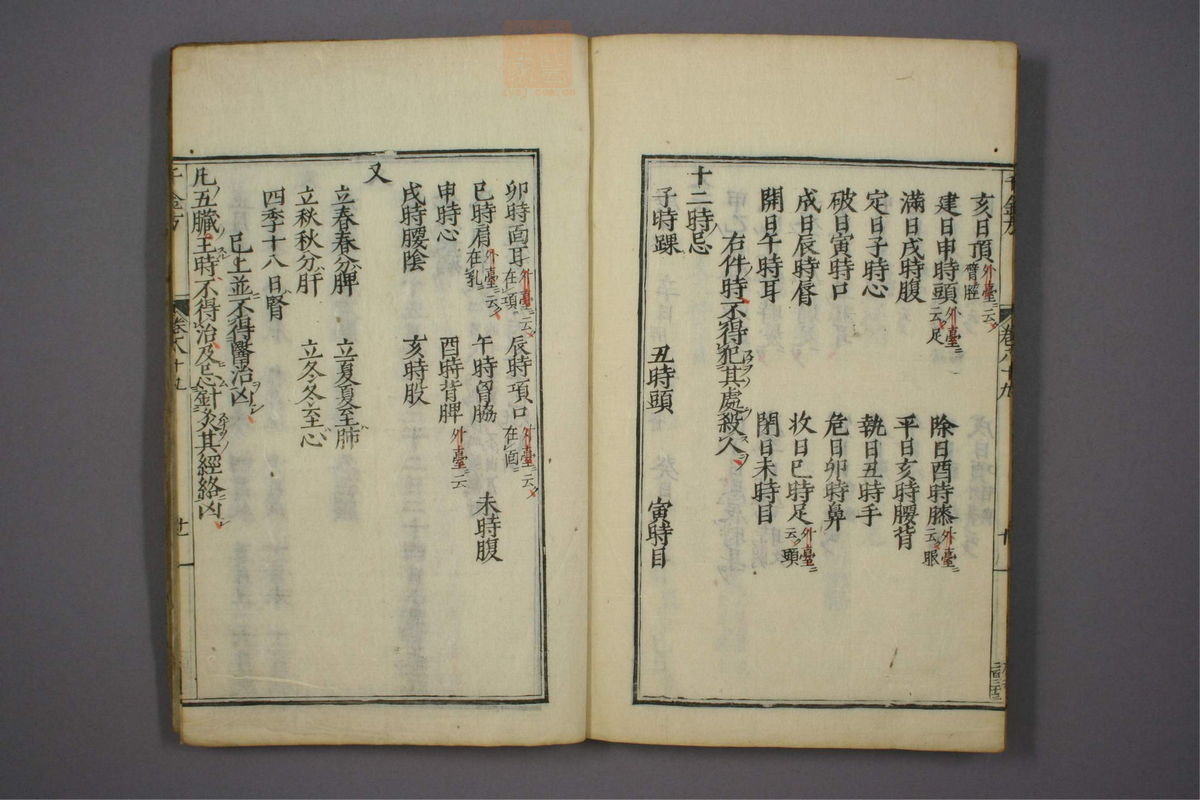 亥日頂外臺云臂脛
建日申時頭外臺云足 除日酉時膝外臺云眼
滿日戌時腹 平日亥時腰背
定日子時心 執日丑時手
破日寅時口 危日卯時鼻
成日辰時脣 收日巳時足外臺云頭
開日午時耳 閉日未時目
右件時不得犯其處殺人
十二時忌
子時踝 丑時頭 寅時目
卯時面耳外臺云在項 辰時項口外臺云在面
巳時肩外臺云在乳 午時胷脇 未時腹
申時心 酉時背脾外臺云
戌時腰陰 亥時股
又
立春春分脾 立夏夏至肺
立秋秋分肝 立冬冬至心
四季十八日腎
已上並不得醫治凶
凡五臟王時不得治及忌針灸其經絡凶
千金方 卷八十九 廿
千金方 卷八十九 廿一